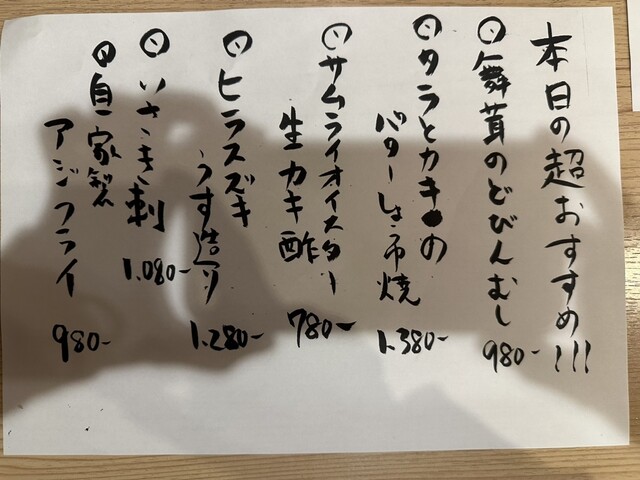 本日の超おすすめ!!!
舞茸のどびんむし
980-
タラとカキの
バターしょうゆ焼
1.380-
サムライオイスター
生カキ酢
780-
ヒラスズキ
うす造り
1.280-
いさき刺
1.080-
自家製
アジフライ
980-